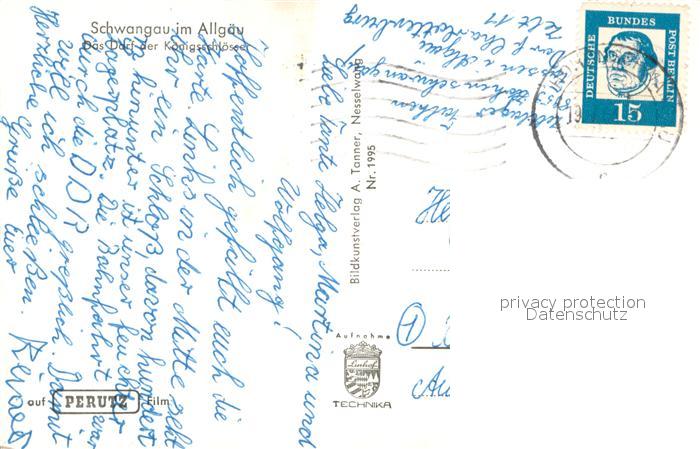 Schwangau im Allgäu
Das Dorf der Königsschlösser
Liebe Tante Helga, Martina und
Wolfgang!
Hoffentlich gefällt euch die
Karte. Links in der Mitte seht
ihr ein Schloß, davon hundert
m herunter ist unser feuchter
Lagerplatz. Die Bahnfahrt war
durch die DDR greßlich. Damit
will ich schließen.
Herzliche Grüße Euer
Bildkunstverlag A. Tanner, Nesselwang
Nr. 1995
Zeltlager Falken
8959 Hohenschwangau
Füssen i. Allgäu
Dorf Charlottenburg
Zelt 11
DEUTSCHE BUNDES POST BERLIN
15
He
1
Aufnahme
Linhof
TECHNIKA
auf PERUTZ Film
privacy protection
Datenschutz